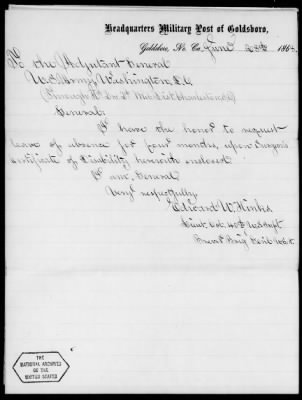 Headquarters Military Post of Goldsboro,
Goldsboro, No. Ca. June 28th 186
To the Adjutant General
U.S. Army, Washington, D.C.
(Through Hd. Qrs. 2d Mil. Dist. Charleston, S.C.)
General:
I have the honor to request
leave of absence for four months, upon Surgeon's
certificate of Disability herewith enclosed.
I am, General
Very respectfully,
Edward W. Hinks
Lieut. Col. 40th U.S. Inft.
Brevet Brig. Genl. U.S.A.
THE
NATIONAL ARCHIVES
OF THE
UNITED STATES